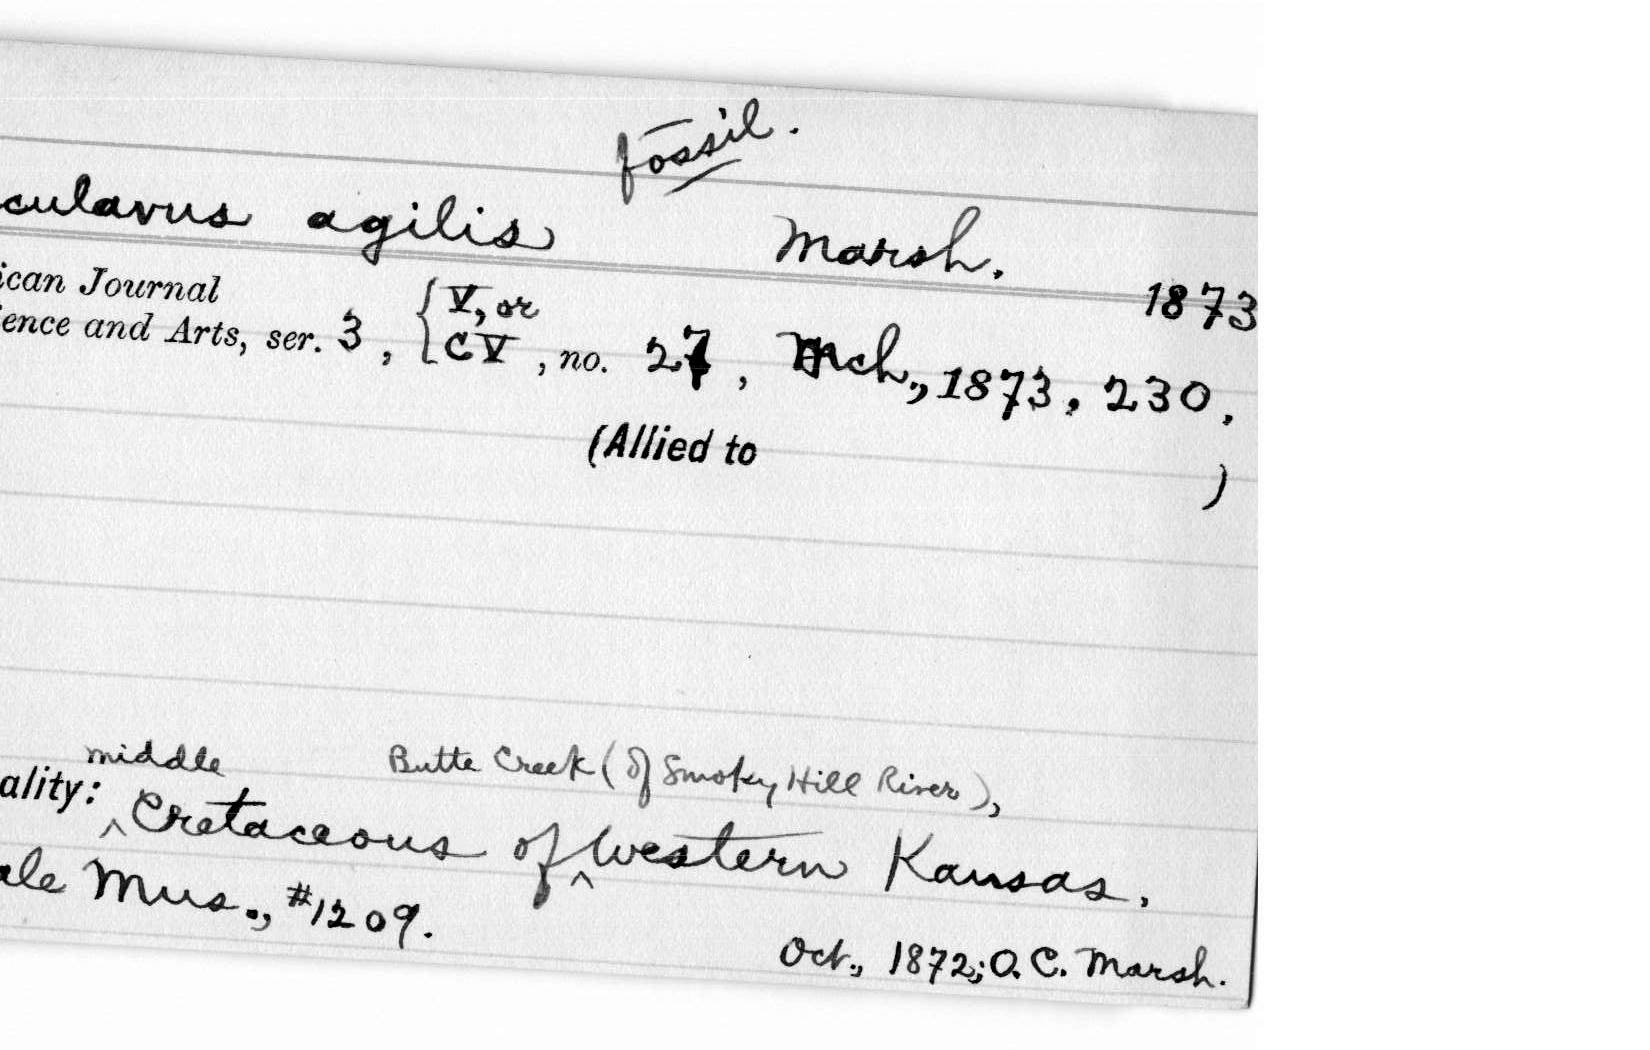 fossil.
culavus agilis Marsh.
1873
ican Journal
ence and Arts, ser. 3, { V, or
CV, no. 27, Mch., 1873, 230.
(Allied to )
middle Butte Creek (of Smoky Hill River),
ality: ^ Cretaceous of ^ Western Kansas.
ale Mus., #1209.
Oct., 1872; O. C. Marsh.